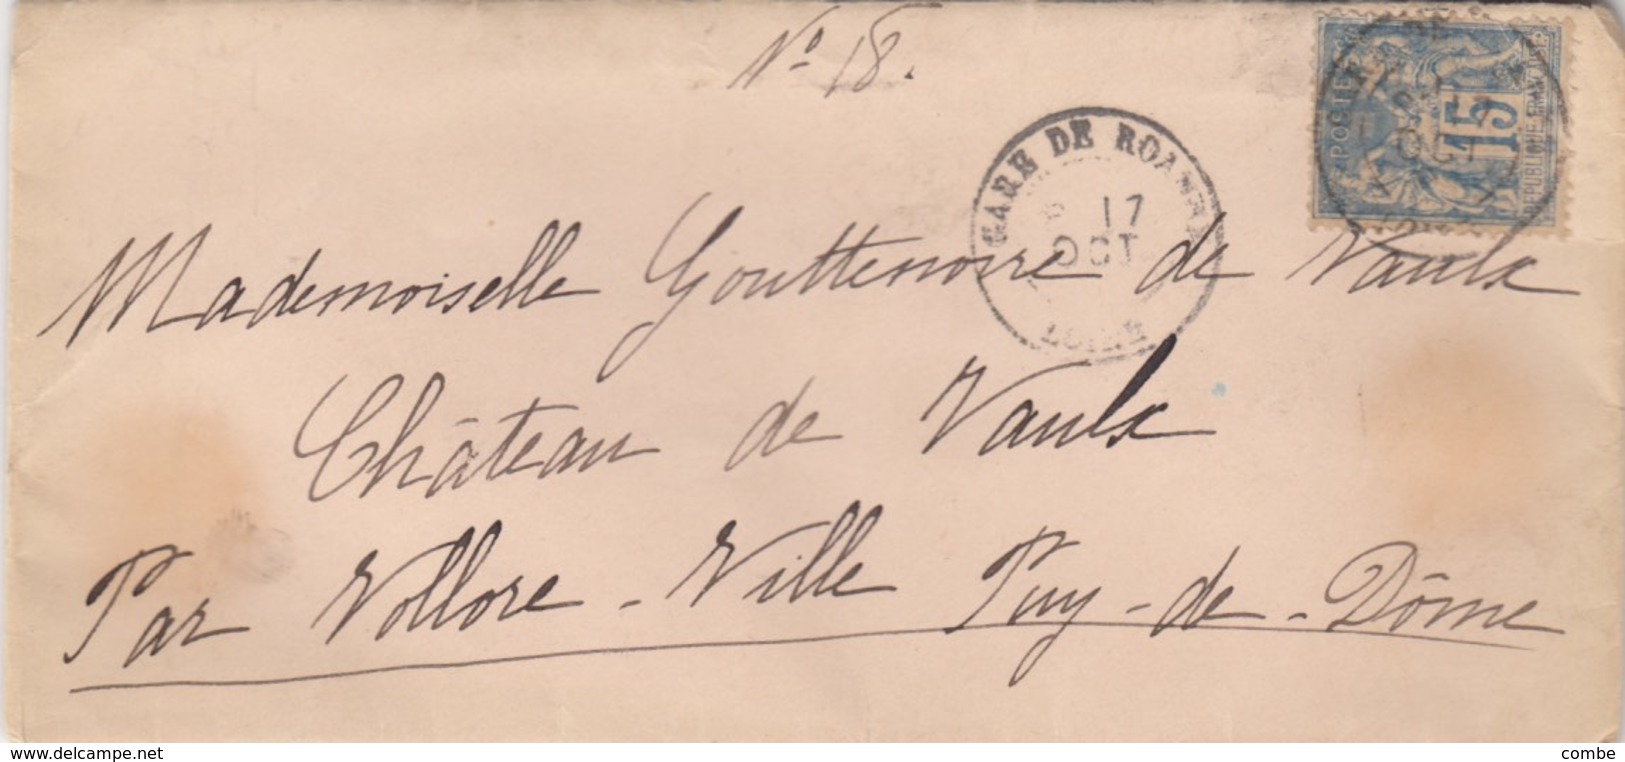 N° 18.
POSTES
15
REPUBLIQUE FRANÇAISE
GARE DE ROANNE
17
OCT
LOIRE
Mademoiselle Gouttenoire de Vaulx
Château de Vaulx
Par Vollore-Ville Puy-de-Dôme
www.delcampe.net
combe